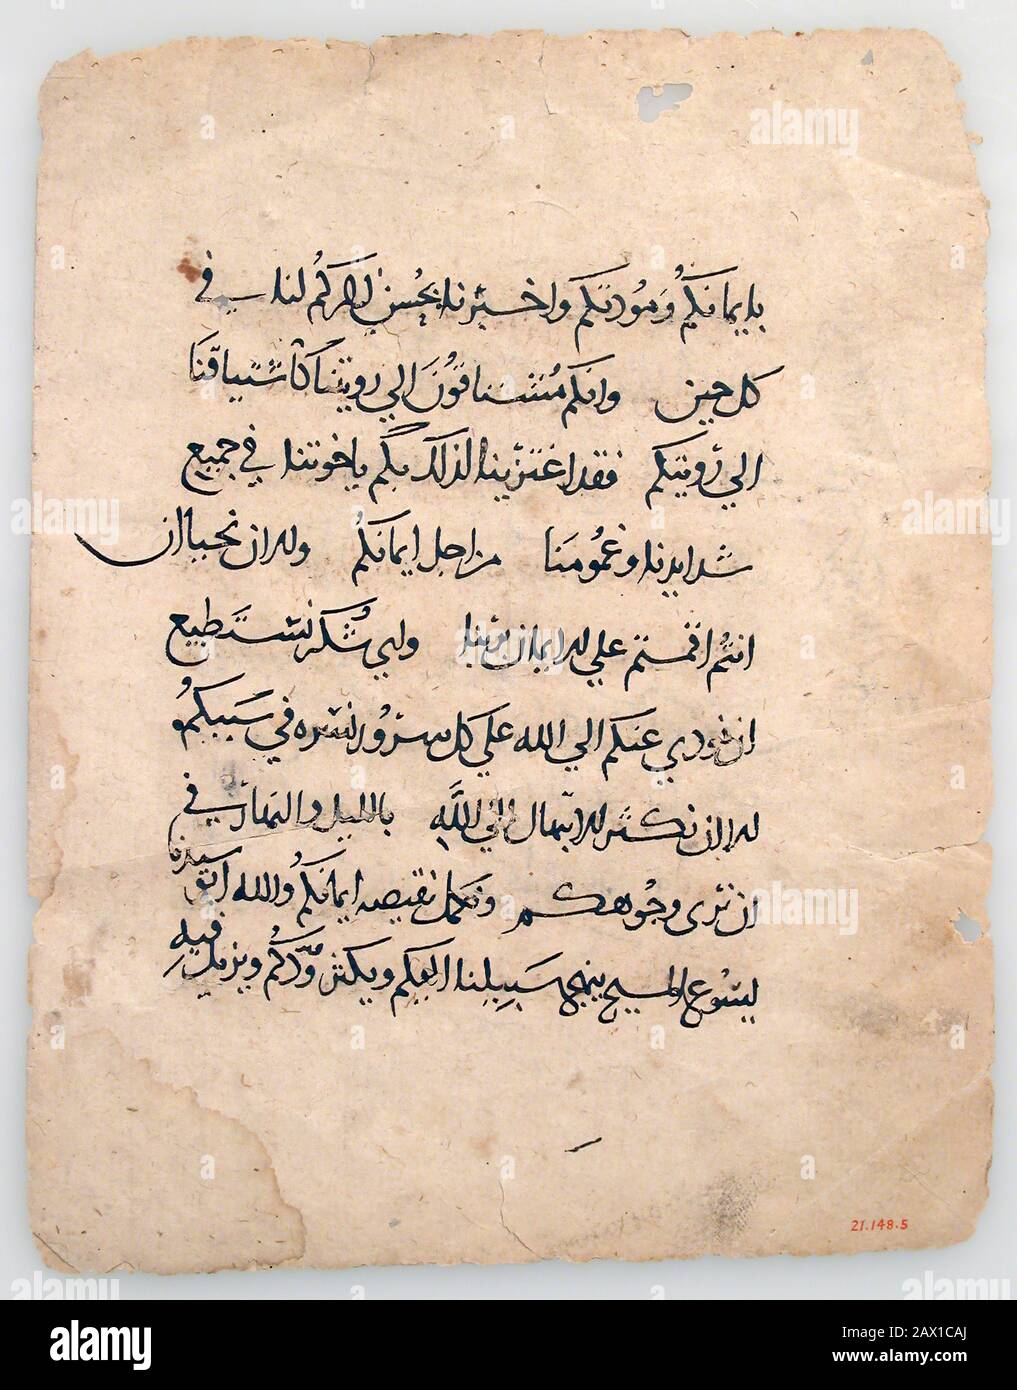 بايمانكم ومودتكم واخبرنا بحسن ذكركم لنا في
كل حين وانكم مشتاقون الي رويتنا كاشتياقنا
الي رويتكم فقد اعتزينا لذلك بكم ياخوتنا في جميع
شدايدنا وغمومنا من اجل ايمانكم والان نحيا ان
انتم اقمتم علي الايمان بربنا واي شكر نستطيع
ان نودي عنكم الي الله علي كل سرور نسره في سببكم
الا ان نكثر الابتهال الي الله بالليل والنهار في
ان نري وجوهكم ونكمل نقيصه ايمانكم والله ابونا
وسيدنا
يسوع المسيح ينهج سبيلنا اليكم ويكثر ودكم ويزيد
فيه
21.148.5
alamy
Image ID: 2AX1CAJ
www.alamy.com